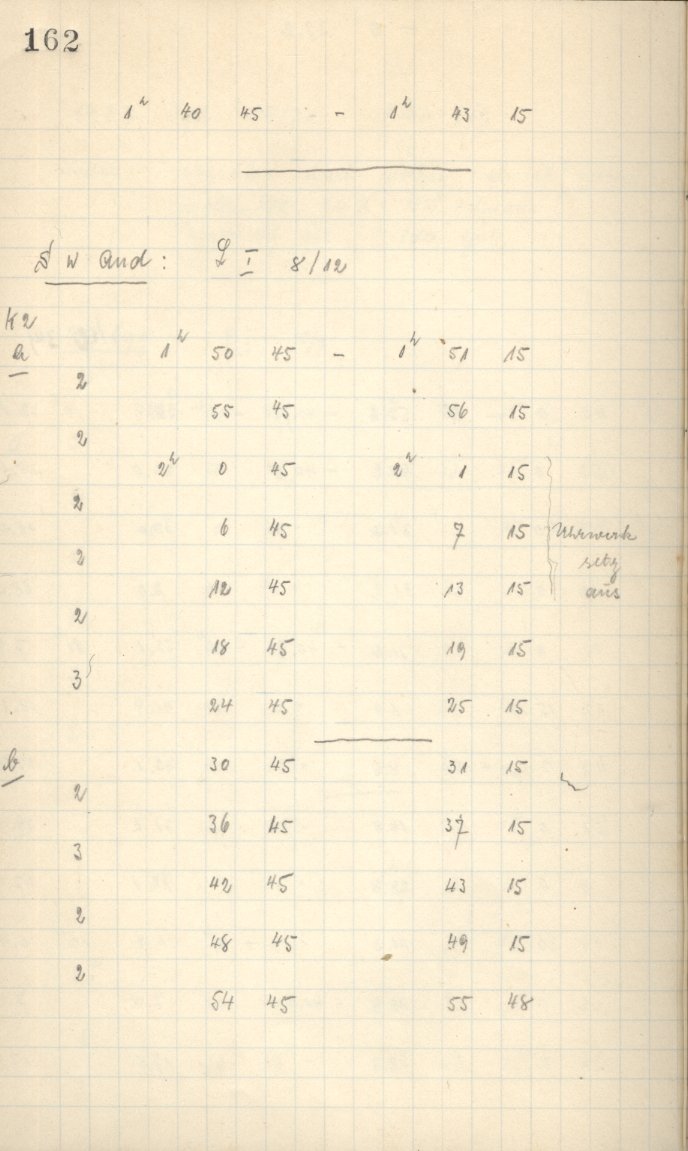 162
1h 40 45 - 1h 43 15
S W And: I 8/12
K2
a 1h 50 45 - 1h 51 15
2
55 45 56 15
2
2h 0 45 2h 1 15
2
6 45 7 15 Uhrwerk
2 setz
12 45 13 15 aus
2
18 45 19 15
3
24 45 25 15
b 30 45 31 15
2
36 45 37 15
3
42 45 43 15
2
48 45 49 15
2
54 45 55 48